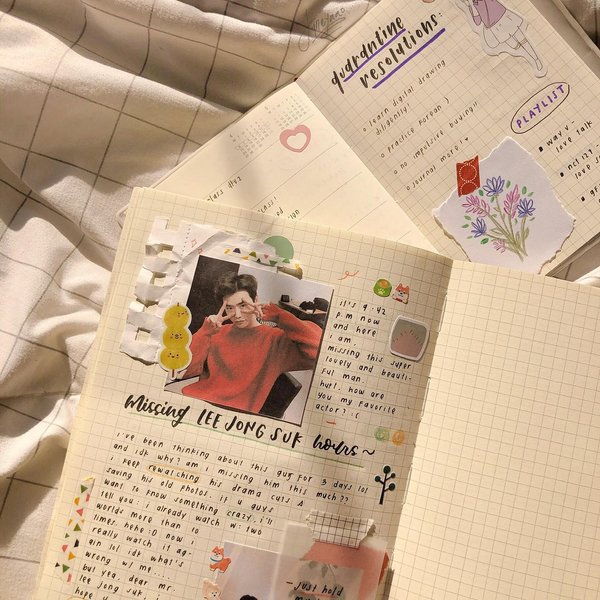 quarantine
resolutions:
o learn digital drawing
diligently!
o practice korean )
o no impulsive buying!!
o journal more ♥
PLAYLIST
■ way v -
love talk
■ nct 127 -
it's 9:42
p.m now
and here
i am
missing this super
lovely and beauti-
ful man.
huft. how are
you my favorite
actor? :(
Missing LEE JONG SUK hours~
i've been thinking about this guy for 3 days lol
and idk why? am i missing him this much??
i keep rewatching his drama cuts &
saving his old photos. if u guys
want to know something crazy, i'll
tell you: i already watch w: two
worlds more than 10
times. hehe :D now i
really watch it ag-
ain lol idk what's
wrong w/ me....
but yea, dear mr.
lee jong suk, i
hope
-just hold